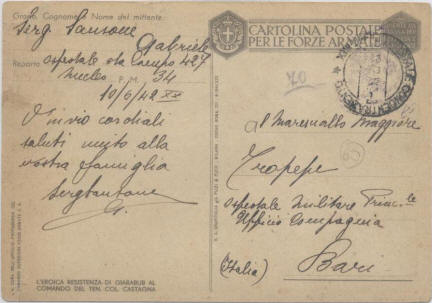 Grado, Cognome e Nome del mittente
Serg. Sansone
Gabriele
Reparto ospedale da Campo 427
Nucleo P.M. 34
10/6/42 XX
Invio cordiali
saluti unito alla
vostra famiglia
Serg Sansone
G.
L'EROICA RESISTENZA DI GIARABUB AL
COMANDO DEL TEN. COL. CASTAGNA
CARTOLINA POSTALE
PER LE FORZE ARMATE
70
al Maresciallo Maggiore
Tropepe
Ospedale Militare Princ.le
Ufficio Compagnia
Bari
(Italia)